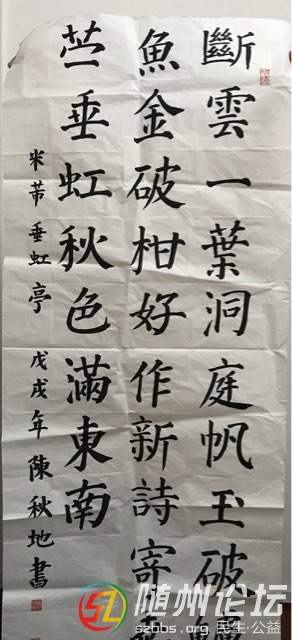 斷雲一葉洞庭帆玉破
魚金破柑好作新詩寄
苎垂虹秋色滿東南
米芾垂虹亭 戊戌年陳秋地書
随州论坛
szbbs.org 民生·公益